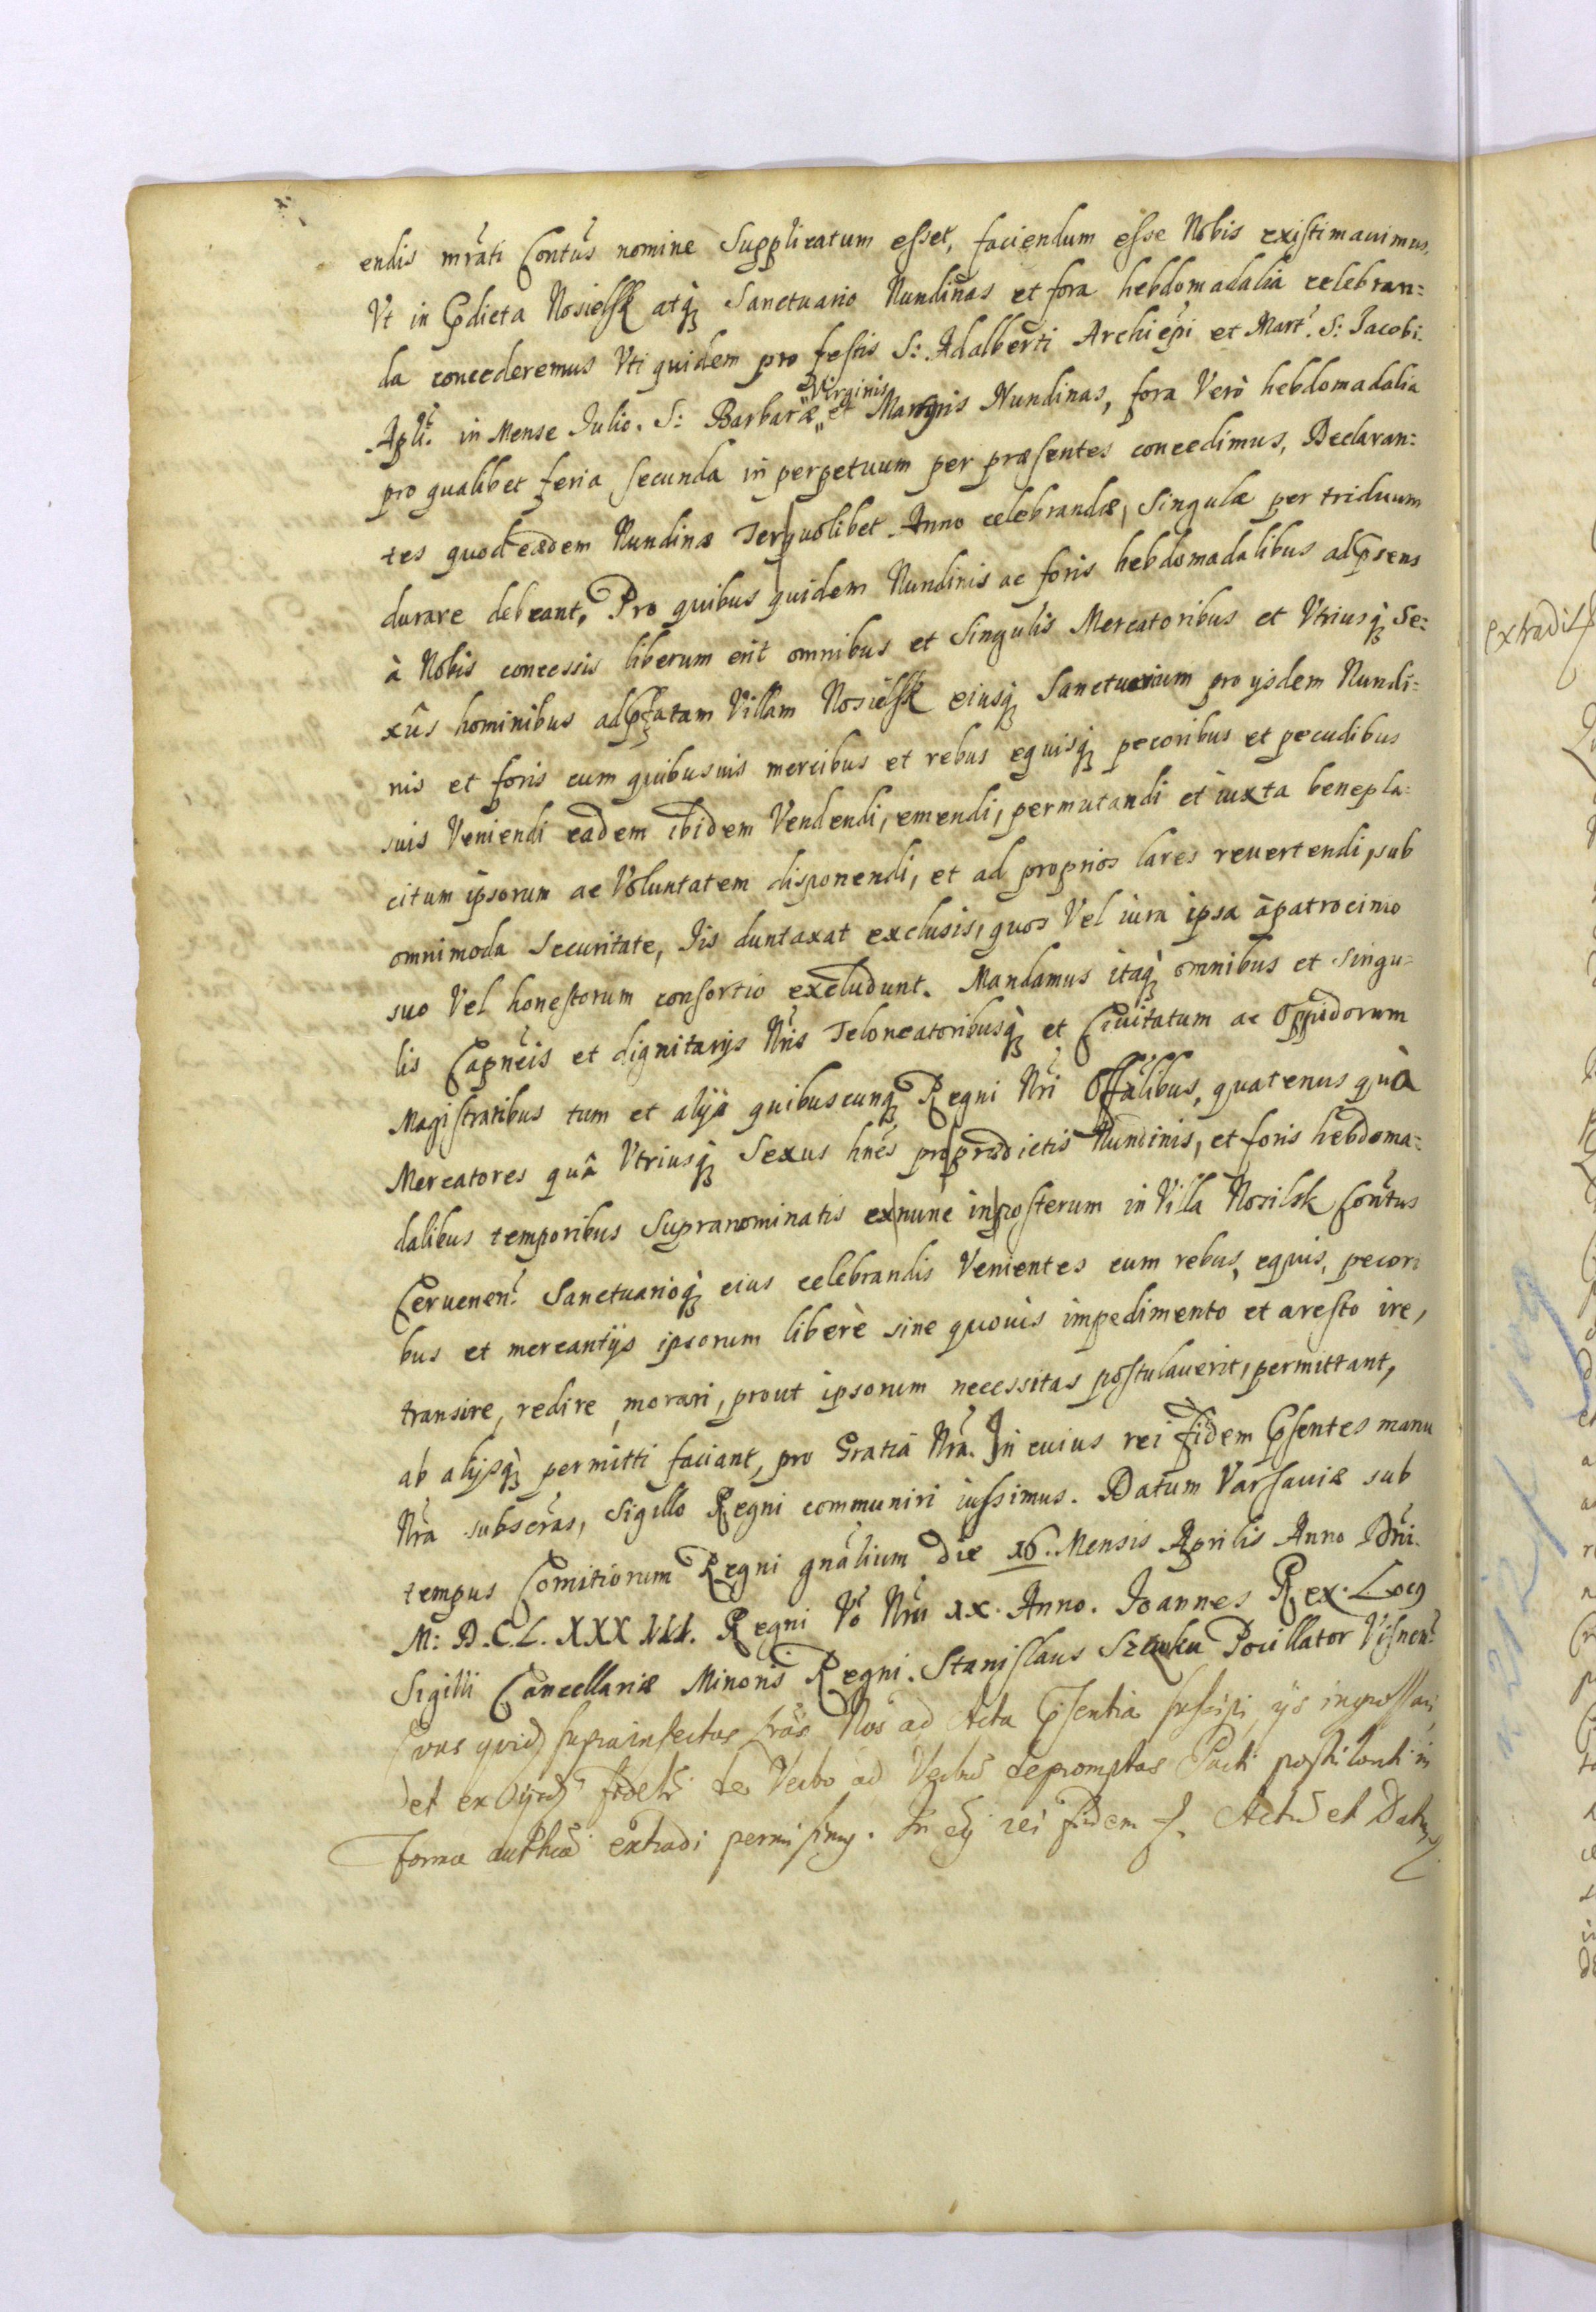 endis mrati Contus nomine Supplicatum esset, faciendum esse Nobis existimauimus,
Vt in Pdicta Nosielsk atq Sanctuario Nundinas et fora hebdomadalia celebran:
da concederemus Vti quidem pro festis S: Adalberti Archiepi et Mart. S: Jacobi
Apli. in Mense Julio. S: Barbaræ Virginis et Martyris Nundinas, fora Verò hebdomadalia
pro qualibet feria secunda in perpetuum per præsentes concedimus, Declaran:
tes quod eædem Nundinæ Ter quolibet Anno celebrandæ, Singulæ per triduum
durare debeant, Pro quibus quidem Nundinis ac foris hebdomadalibus ad psens
à Nobis concessis liberum erit omnibus et Singulis Mercatoribus et Vtriusq Se:
xûs hominibus ad pfatam Villam Nosielsk eiusq Sanctuarium pro ysdem Nundi:
nis et foris cum quibusuis mercibus et rebus equisq pecoribus et pecudibus
suis Veniendi eadem ibidem Vendendi, emendi, permutandi et iuxta benepla:
citum ipsorum ac Voluntatem disponendi, et ad proprios lares reuertendi, sub
omnimoda Securitate, Iis duntaxat exclusis, quos Vel iura ipsa à patrocinio
suo Vel honestorum consortio excludunt. Mandamus itaq omnibus et singu:
lis Capneis et dignitarijs Nris Teloneatoribusq et Ciuitatum ac Oppidorum
Magistratibus tum et alijs quibuscunq Regni Nri Offalibus, quatenus quà
Mercatores quâ Vtriusq Sexus hnes pro prædictis Nundinis, et foris hebdoma:
dalibus temporibus Supranominatis ex nunc in posterum in Villa Nosilsk Contus
Ceruenen. Sanctuarioq eius celebrandis Venientes cum rebus, equis, pecori
bus et mercantijs ipsorum liberè sine quouis impedimento et aresto ire,
transire, redire, morari, prout ipsorum necessitas postulauerit, permittant,
ab alijsq permitti faciant, pro Gratiâ Nra. In cuius rei fidem Psentes manu
Nra subscras, Sigillo Regni communiri iussimus. Datum Varsauiæ sub
tempus Comitiorum Regni gnalium die 16. Mensis Aprilis Anno Dni.
M: D.C.L. XXX III. Regni Vo Nri IX. Anno. Joannes Rex. Locg
Sigilli Cancellariæ Minoris Regni. Stanislaus Szczuka Pocillator Visnen.
suprainsertas Lras Nos ad Acta Psentia suscipi, ijs ingrossari,
et ex ijsd fidelr de Verbo ad Verbu depromptas Parti postulanti in
forma authca extradi permisimus. In cuius rei fidem Actu et Datu
extradit